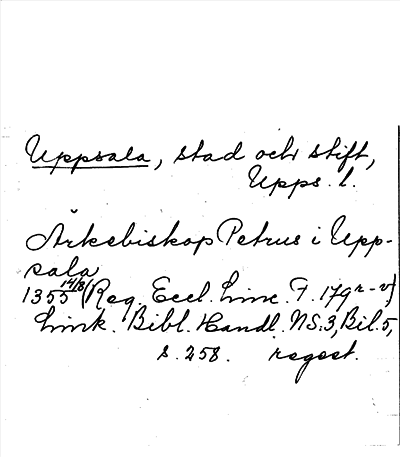 Uppsala, stad och stift,
Upps. l.
Ärkebiskop Petrus i Upp-
sala
1355 14/8 (Reg. Eccl. Linc. F. 179 r-v)
Link. Bibl. Handl. NS:3, Bil. 5,
s. 258. regest.